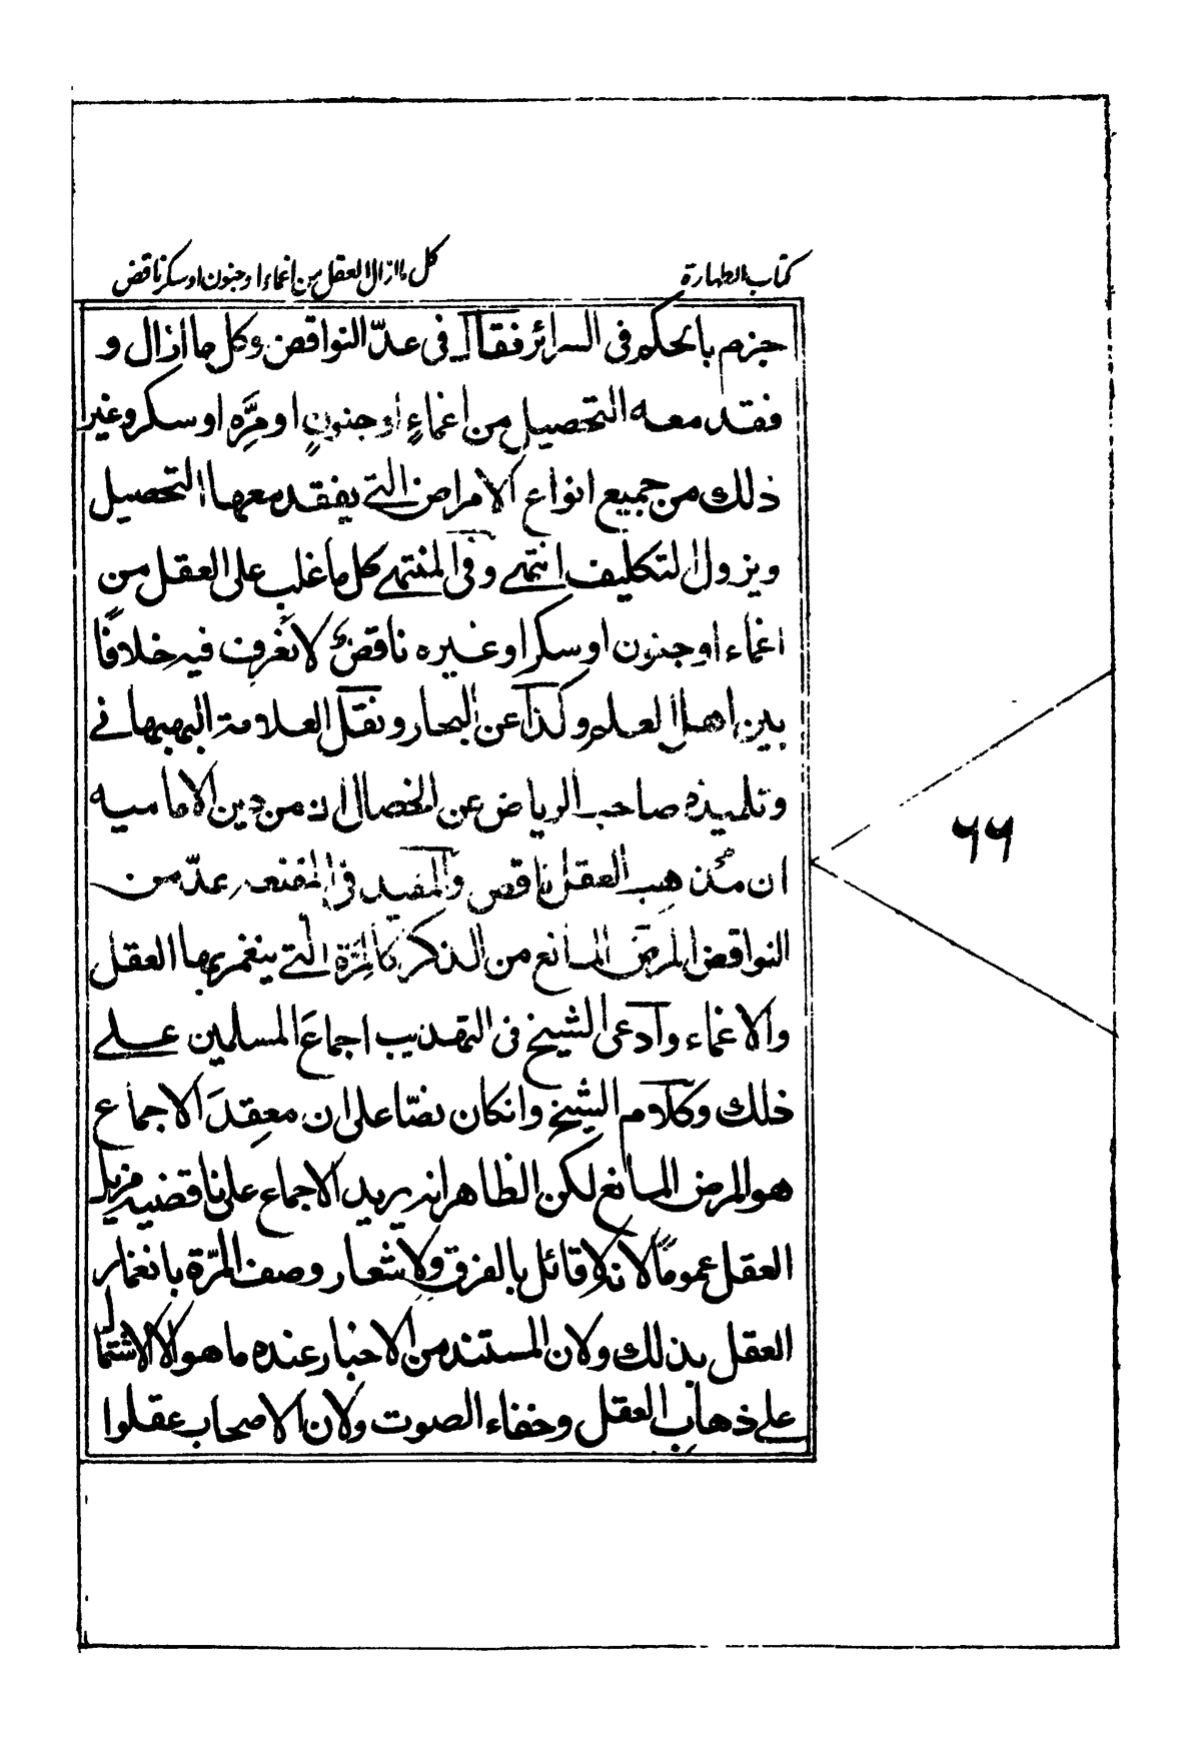 كتاب الطهارة
كل ما ازال العقل من اغماء او جنون او سكر ناقض
جزم بالحكم فى السرائر فقال فى عدّ النواقض وكل ما ازال و
فقد معه التحصيل من اغماءٍ او جنونٍ او مِرَّه او سكر وغير
ذلك من جميع انواع الامراض التے يفقد معها التحصيل
ويزول التكليف انتهے وفى المنتهے كل ما غلب على العقل من
اغماء او جنون او سكر او غيره ناقض لا نعرف فيه خلافًا
بين اهل العلم وكذا عن البحار ونقل العلامة البهبهانے
وتلميذه صاحب الرياض عن الخصال ان من دين الاماميه
ان مُذهب العقل ناقض والمفيد فى المقنعه عدّ من
النواقض المرض المانع من الذكر كالمِرّة التے ينغمر بها العقل
والاغماء وادعى الشيخ فى التهذيب اجماعَ المسلمين علے
ذلك وكلام الشيخ وانكان نصّا على ان معقِدَ الاجماع
هو المرض المانع لكن الظاهر انه يريد الاجماع على ناقضيه مزيل
العقل عمومًا لانه لا قائل بالفرق ولاشعار وصف المرّة بانغمار
العقل بذلك ولان المستند من الاخبار عنده ما هو الا لاشتمال
علے ذهاب العقل وخفاء الصوت ولان الاصحاب عقلوا
٦٦